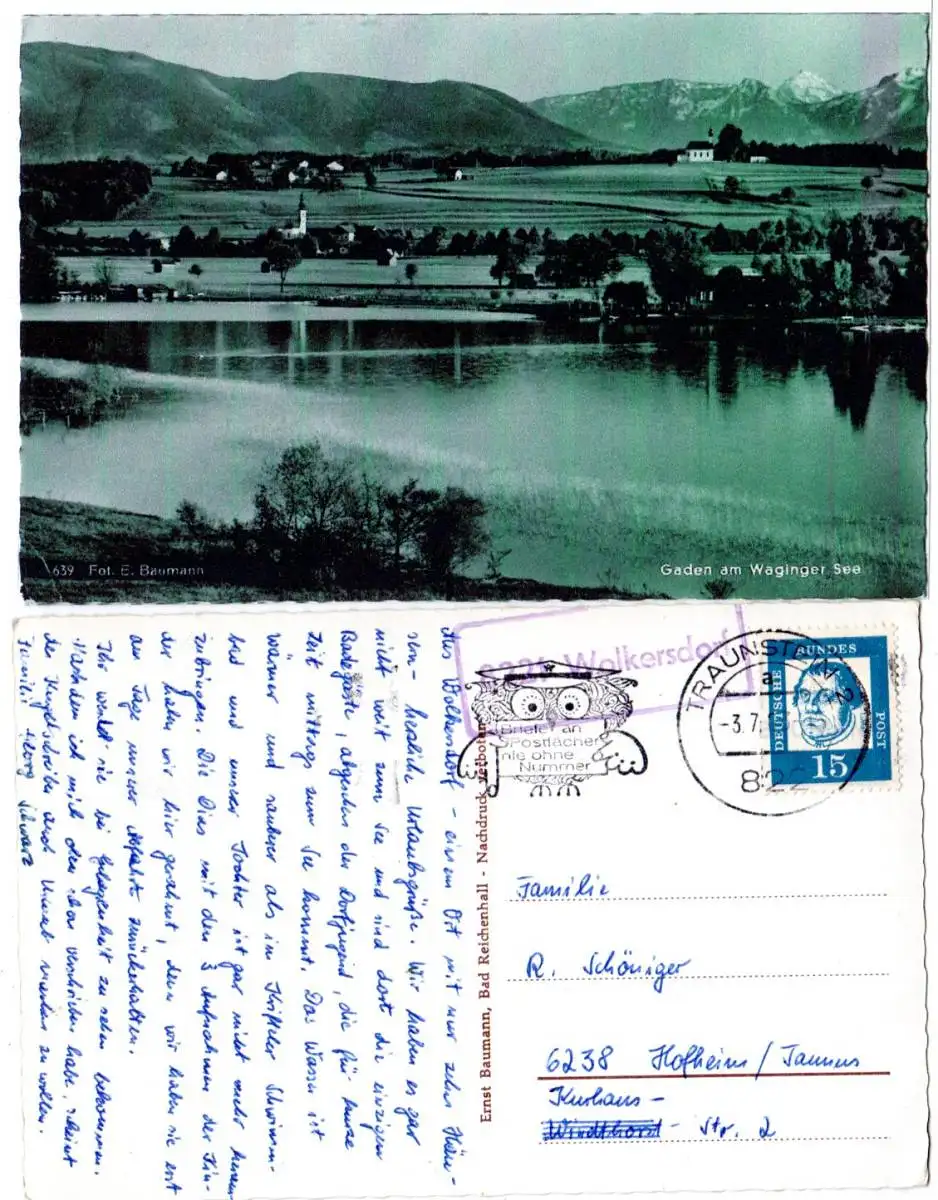 639 Fot. E. Baumann
Gaden am Waginger See
Aus Wolkersdorf - einem Ort mit nur zehn Häu-
sern - herzliche Urlaubsgrüße. Wir haben es gar
nicht weit zum See und sind dort die einzigen
Badegäste, abgesehen der Dorfjugend, die für kurze
Zeit mittags zum See kommt. Das Wasser ist
wärmer und sauberer als im Krifteler Schwimm-
bad und unsere Tochter ist gar nicht mehr heraus
zubringen. Die Dias mit den 3 Aufnahmen der Kin-
der haben wir hier gerahmt, denn wir haben sie erst
am Tage unserer Abfahrt zurückerhalten.
Ihr werdet sie bei Gelegenheit zu sehen bekommen.
Nachdem ich mich oben schon verschrieben habe, scheint
der
auch
zu wollen.
Familie Georg Schwarz
Ernst Baumann, Bad Reichenhall - Nachdruck verboten
Wolkersdorf
Briefe an
Postfächer
nie ohne
Nummer
TRAUNSTEIN 2
a
-3.7.
822
DEUTSCHE BUNDES POST
15
Familie
R. Schöniger
6238 Hofheim/Taunus
Kurhaus-
Windthorst- Str. 2